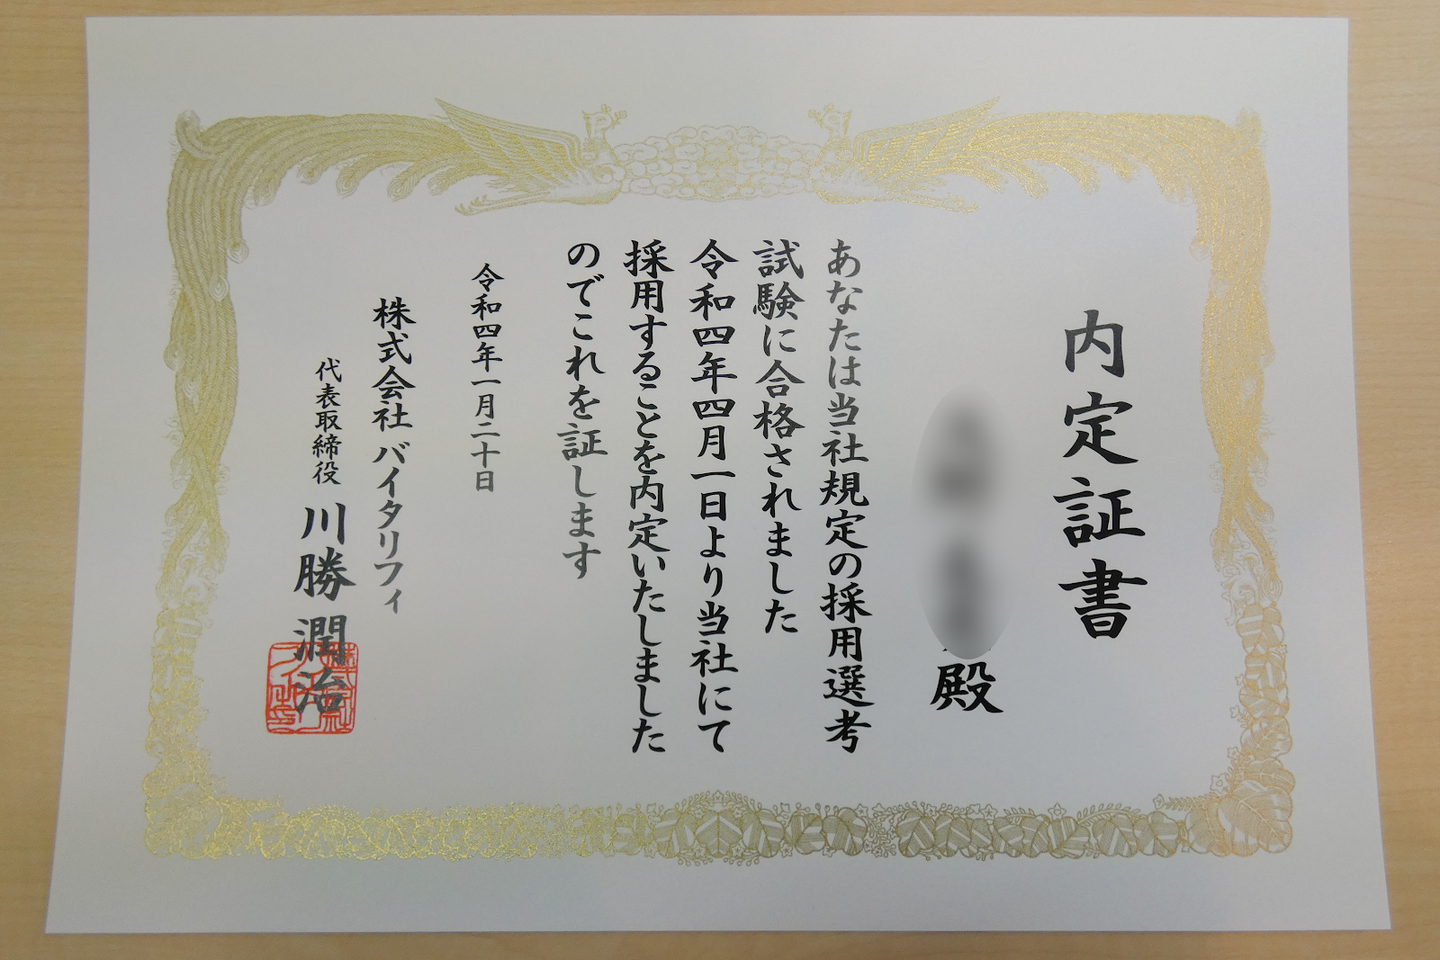 内定証書
殿
あなたは当社規定の採用選考
試験に合格されました
令和四年四月一日より当社にて
採用することを内定いたしました
のでこれを証します
令和四年一月二十日
株式会社 バイタリフィ
代表取締役 川勝 潤治